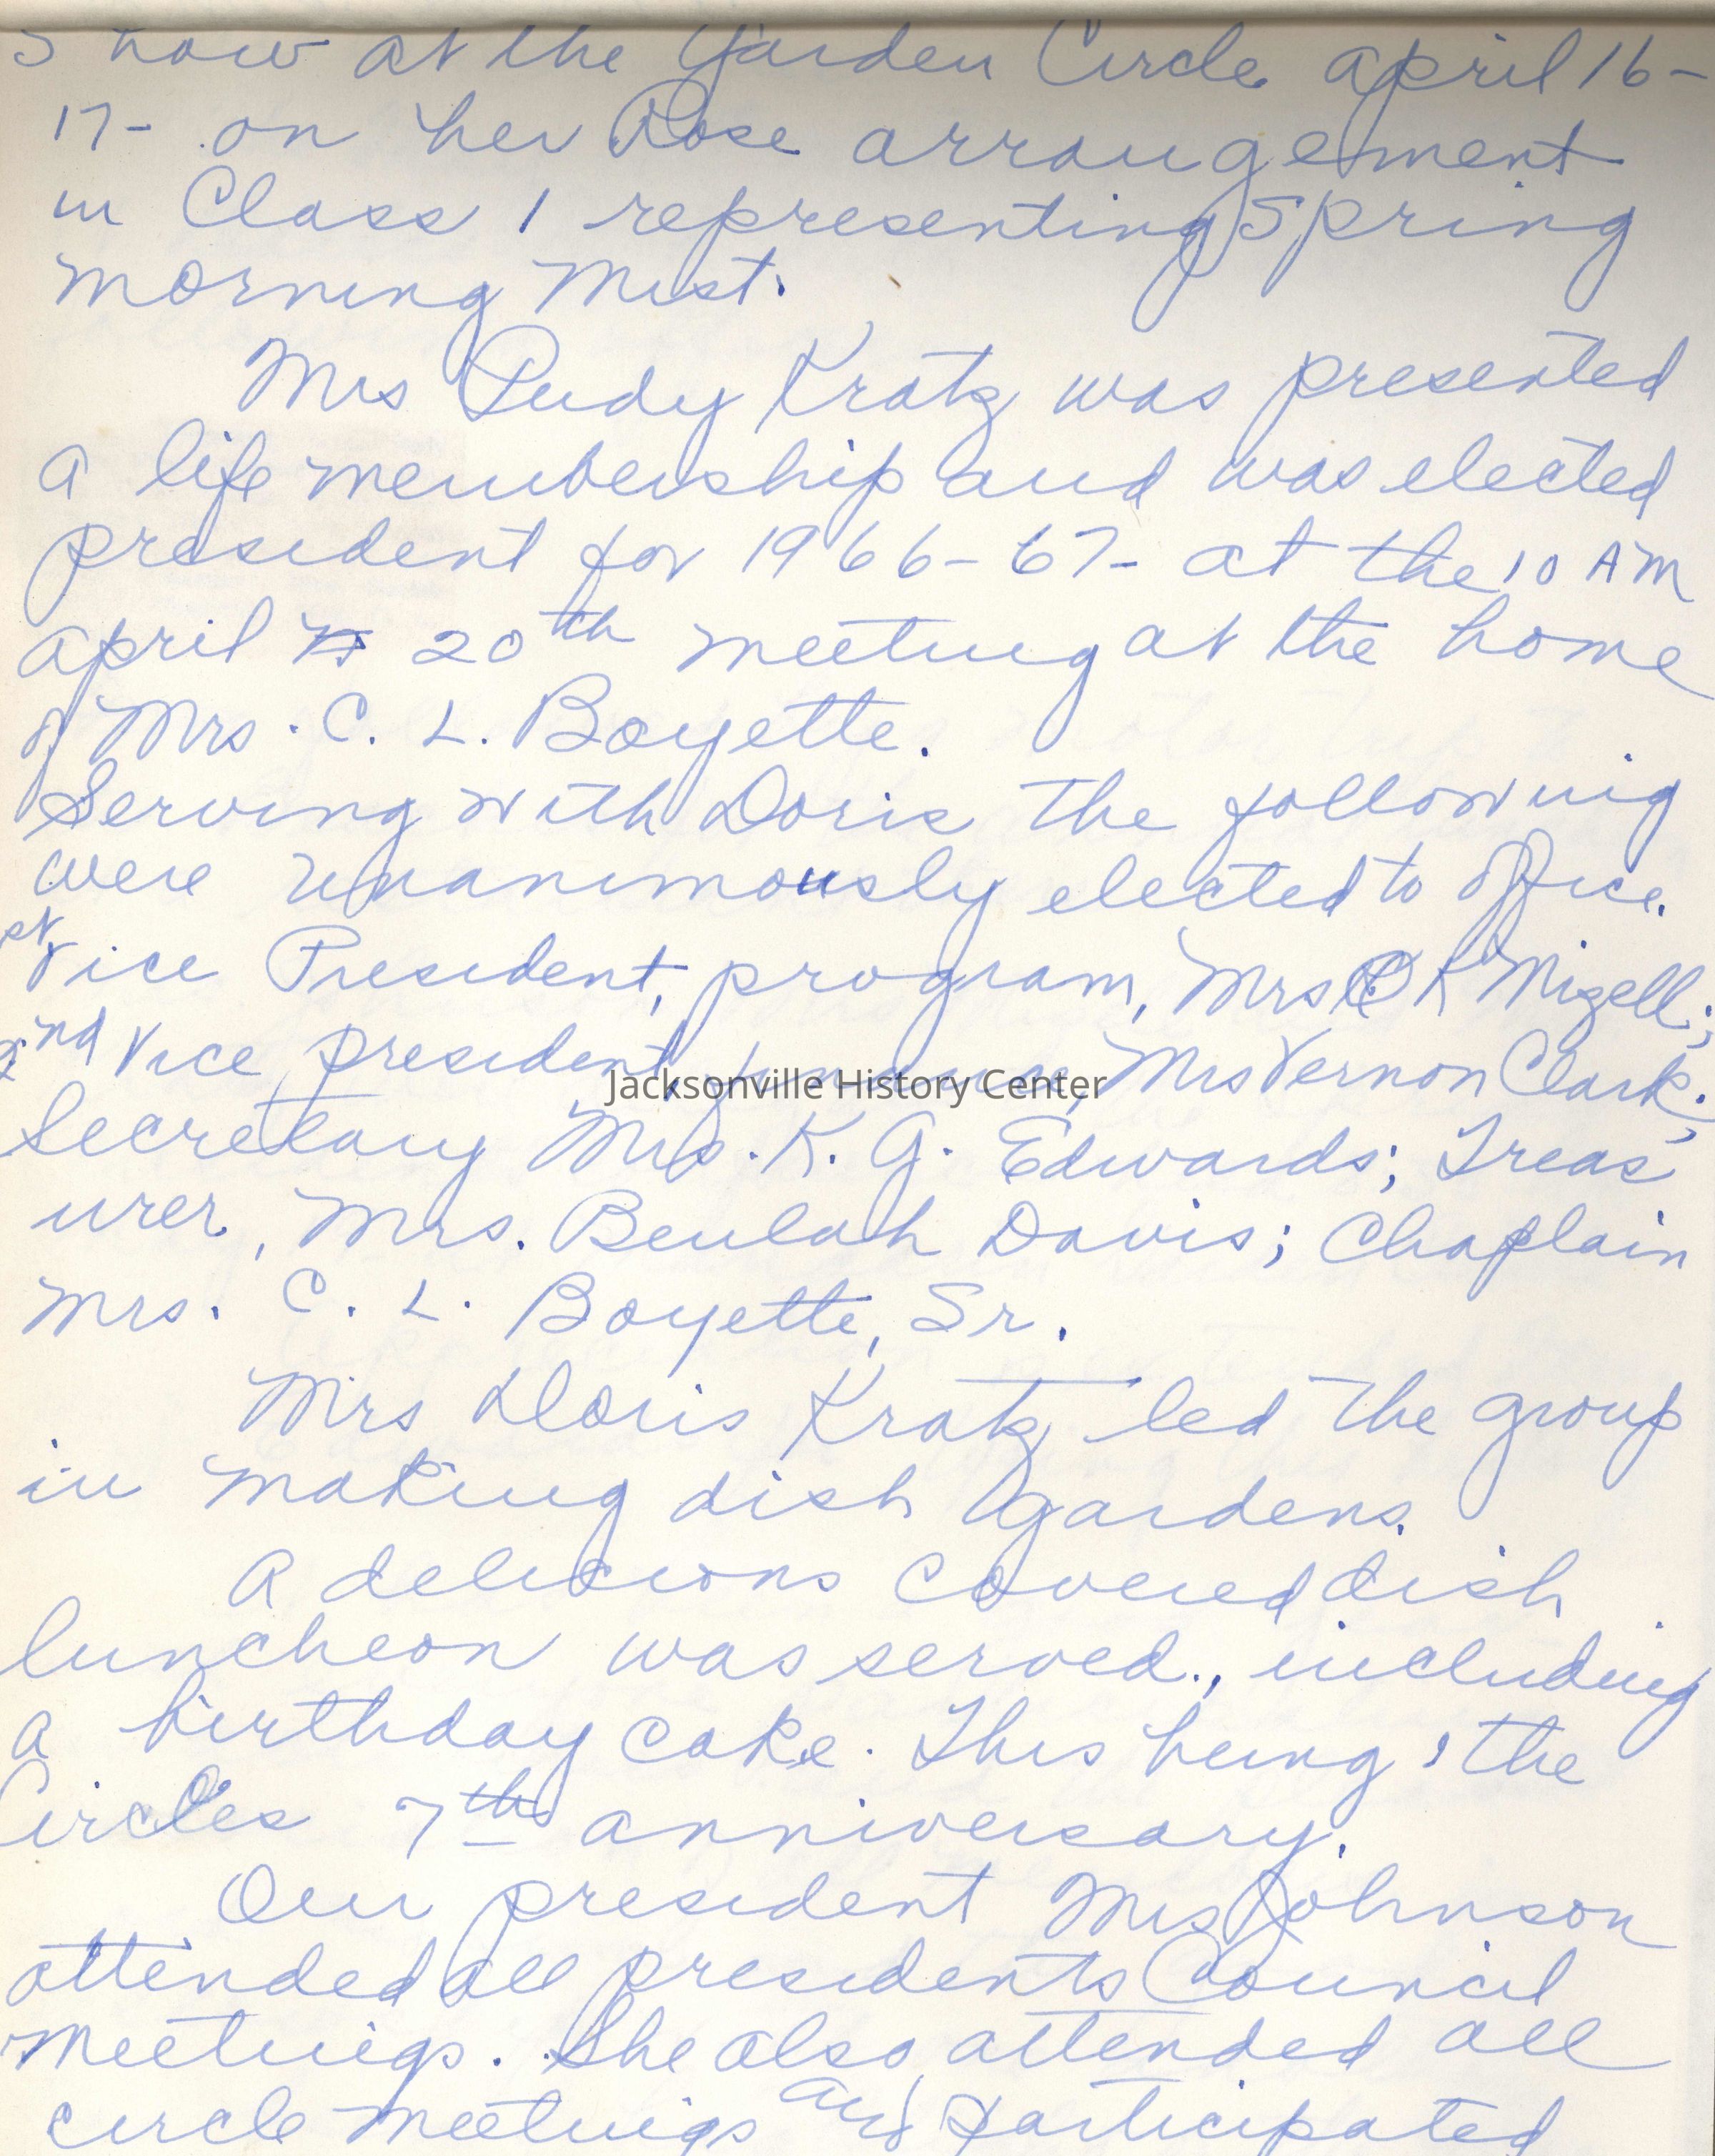 Show at the Garden Circle April 16-
17- on her Rose arrangement
in Class 1 representing Spring
Morning Mist.
Mrs Rudy Kratz was presented
a life membership and was elected
president for 1966-67- at the 10 AM
April 20th meeting at the home
of Mrs. C. L. Boyette.
Serving with Doris the following
were unanimously elected to office.
1st Vice President, program, Mrs C K Mizell;
2nd Vice president, finance, Mrs Vernon Clark;
Jacksonville History Center
Secretary Mrs. K. G. Edwards; Treas
urer, Mrs. Beulah Davis; Chaplain
Mrs. C. L. Boyette, Sr.
Mrs Doris Kratz led the group
in making dish gardens.
A delicious covered dish
luncheon was served., including
a birthday cake. This being the
Circles 7th anniversary.
Our president Mrs Johnson
attended all presidents Council
meetings. She also attended all
circle meetings and participated